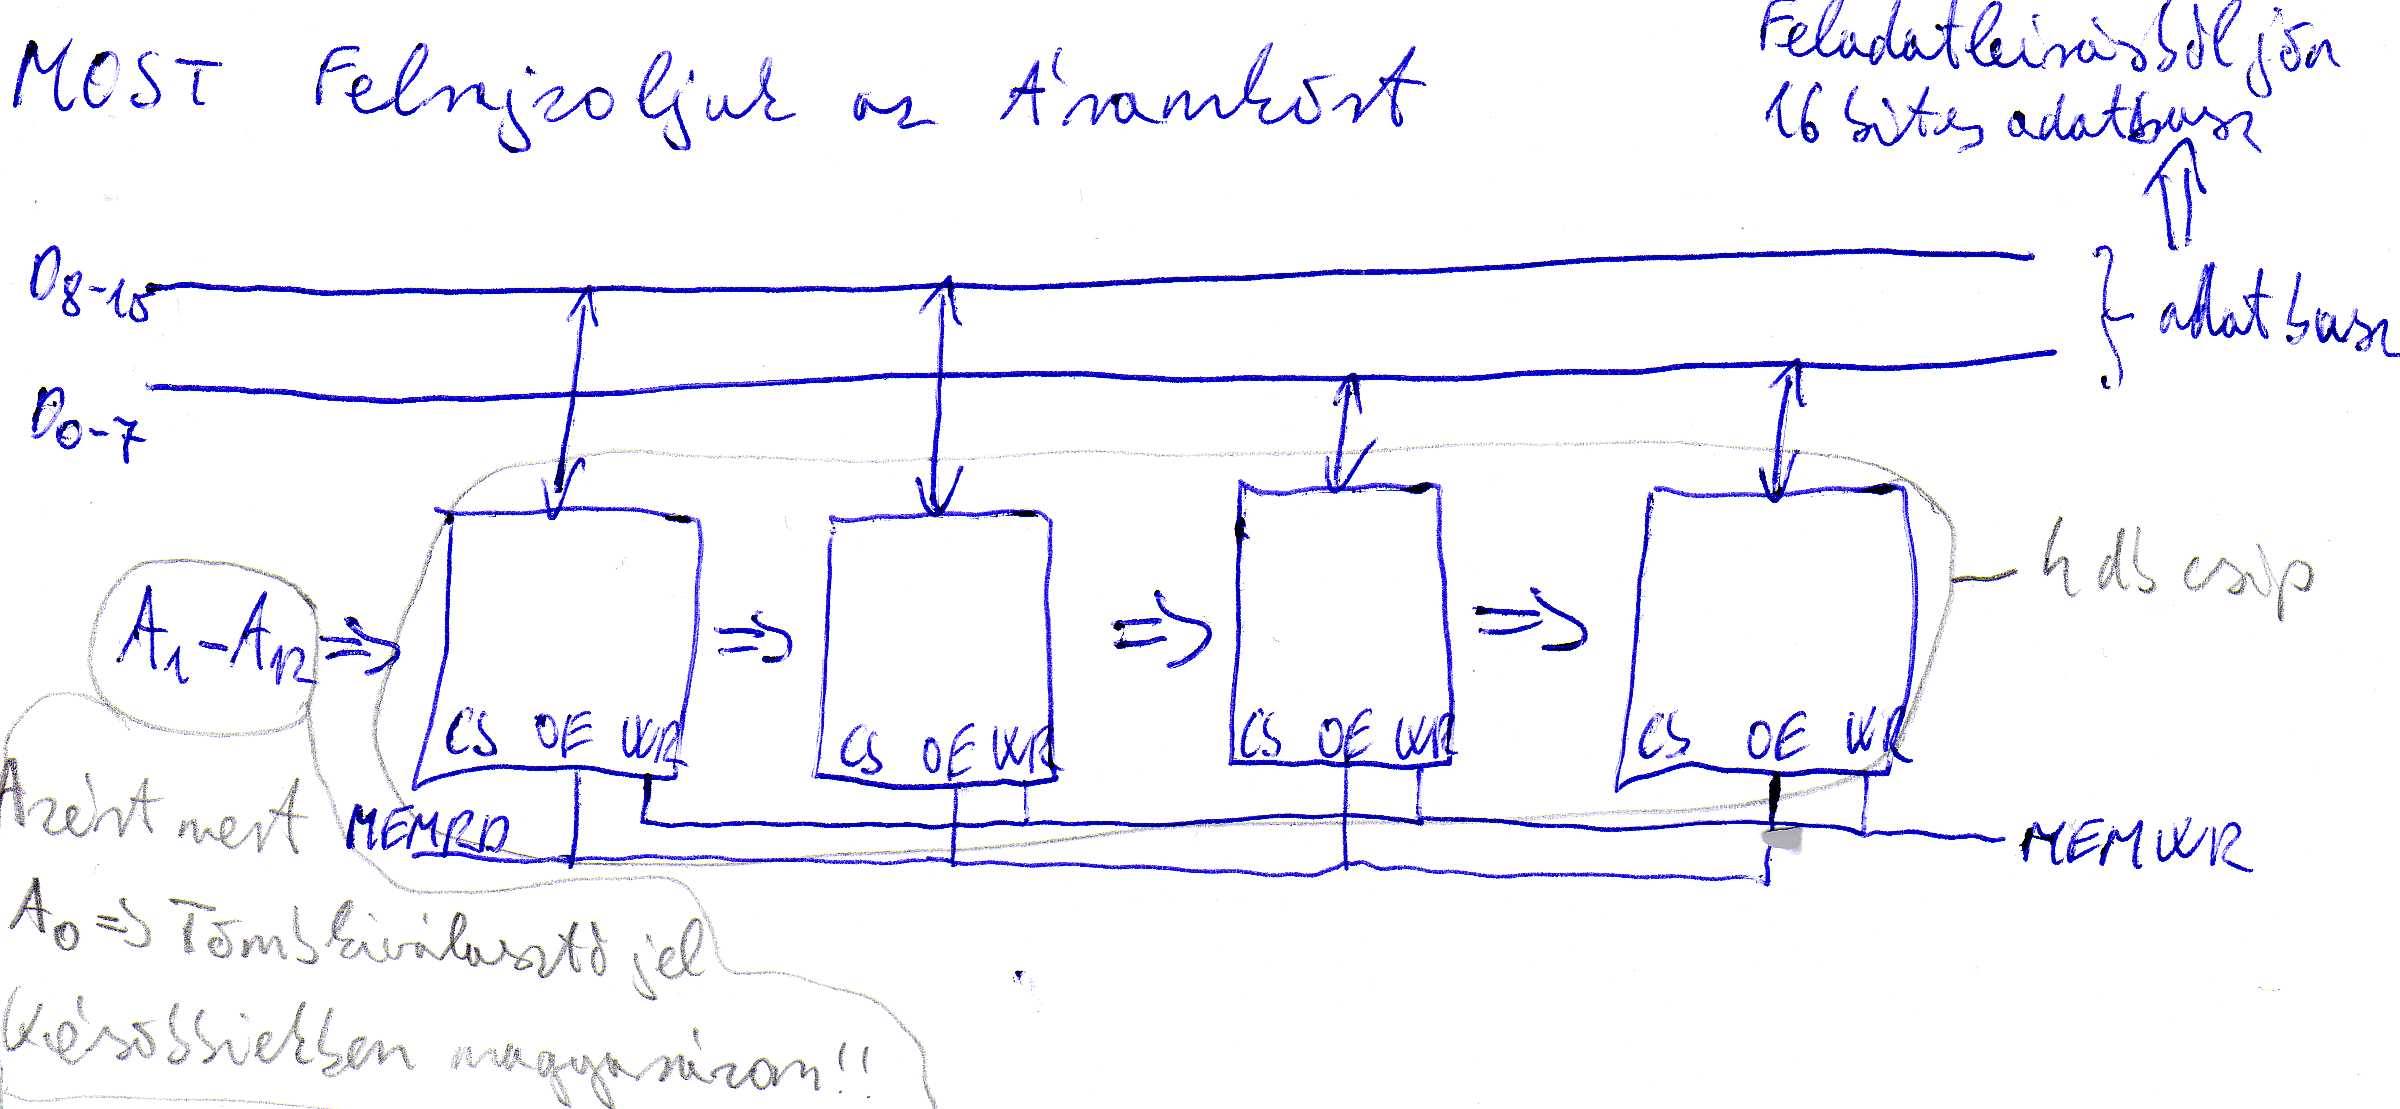 MOST Felrajzoljuk az Áramkört
Feladatleírásból jön
16 bites adatbusz
D8-15
adatbusz
D0-7
4 db csip
A1-A12 => => => =>
CS OE WR
CS OE WR
CS OE WR
CS OE WR
Azért mert
MEMRD
MEMWR
A0 => Tömbkiválasztó jel
Későbbiekben magyarázom!!